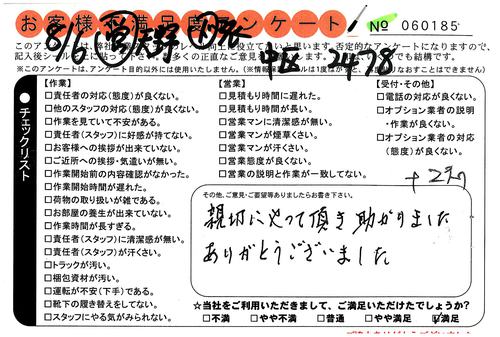 お客様不満足度アンケート!
No 060185
8/6
中区 2478
【作業】
□責任者の対応(態度)が良くない。
□他のスタッフの対応(態度)が良くない。
□作業を見ていて不安がある。
□責任者(スタッフ)に好感が持てない。
□お客様への挨拶が出来ていない。
□ご近所への挨拶・気遣いが無い。
□作業開始前の内容確認がなかった。
□作業開始時間が遅れた。
□荷物の取り扱いが雑である。
□お部屋の養生が出来ていない。
□作業時間が長すぎる。
□責任者(スタッフ)に清潔感が無い。
□責任者(スタッフ)が汗くさい。
□トラックが汚い。
□梱包資材が汚い。
□運転が不安(下手)である。
□靴下の履き替えをしてない。
□スタッフにやる気がみられない。
【営業】
□見積もり時間に遅れた。
□見積もり時間が長い。
□営業マンに清潔感が無い。
□営業マンが煙草くさい。
□営業マンが汗くさい。
□営業態度が良くない。
□営業の説明と作業が一致してない。
【受付・その他】
□電話の対応が良くない。
□オプション業者の説明
・作業が良くない。
□オプション業者の対応
(態度)が良くない。
●チェックリスト
その他、ご意見・ご要望等ありましたらお書き下さい。
親切にやって頂き助かりました
ありがとうございました
☆当社をご利用いただきまして、ご満足いただけたでしょうか?
□不満 □やや不満 □普通 □やや満足 ☑満足